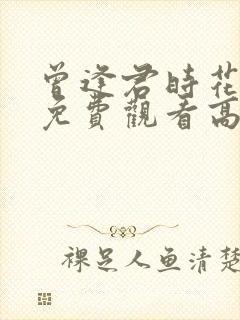 曾逢君時花
免費觀看高
裸足人鱼清楚